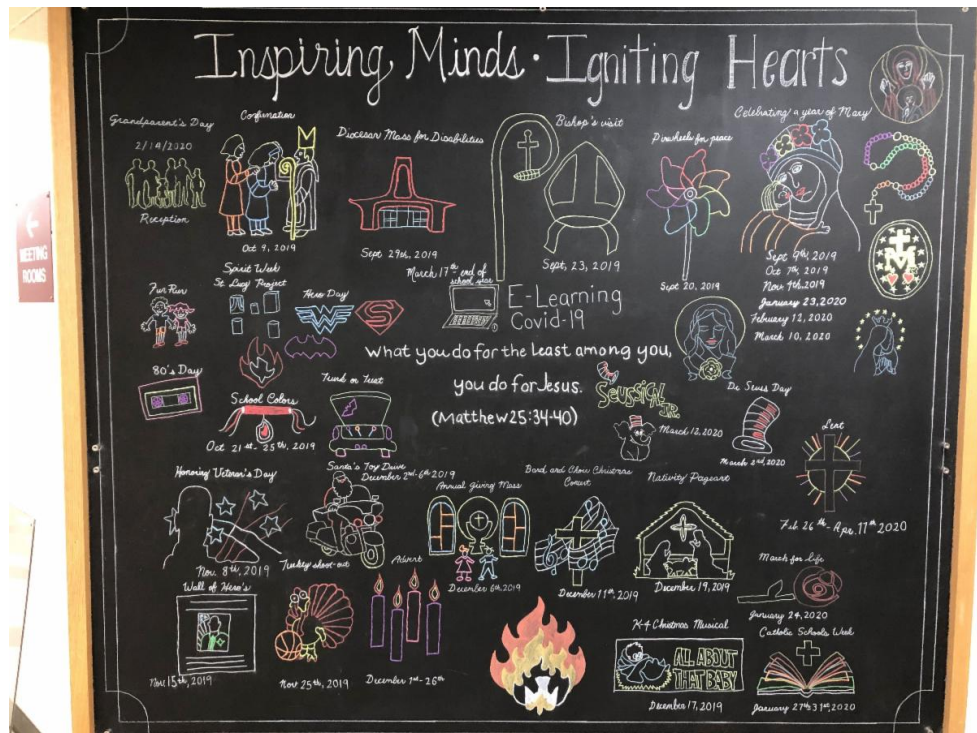 Inspiring Minds · Igniting Hearts
Grandparent's Day
2/14/2020
Reception
Confirmation
Oct 9, 2019
Diocesan Mass for Disabilities
Sept 29th, 2019
Bishop's visit
Sept, 23, 2019
Pinwheels for peace
Sept 20, 2019
Celebrating a year of Mary
Sept 9th, 2019
Oct 7th, 2019
Nov 4th, 2019
January 23, 2020
February 12, 2020
March 10, 2020
M
←
MEETING
ROOMS
Fun Run
Spirit Week
St Lucy Project
Hero Day
S
March 17th - end of
school year
E-Learning
Covid-19
What you do for the least among you,
you do for Jesus.
(Matthew 25:34-40)
80's Day
School Colors
Oct 21st - 25th, 2019
Trunk or Treat
Seussical JR.
March 12, 2020
Dr Seuss Day
March 2nd, 2020
Lent
Feb 26th - Apr. 11th 2020
Honoring Veteran's Day
Nov. 8th, 2019
Santa's Toy Drive
December 2nd-6th 2019
Annual Giving Mass
December 6th, 2019
Band and Choir Christmas
Concert
December 11th, 2019
Nativity Pageant
December 19, 2019
March for life
January 24, 2020
Wall of Hero's
Nov. 15th, 2019
Turkey shoot-out
Nov 25th, 2019
Advent
December 1st - 26th
K-4 Christmas Musical
ALL ABOUT
THAT BABY
December 17, 2019
Catholic Schools Week
January 27th 31st, 2020